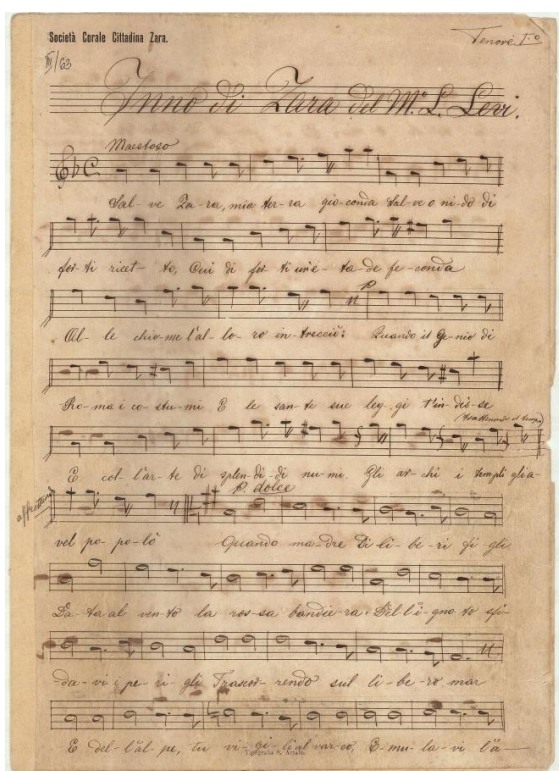 Società Corale Cittadina Zara.
Tenore I.o
III/63
Inno di Zara del M.o L. Levi.
Maestoso
Sal-ve Za-ra, mia ter-ra gio-conda Sal-ve o ni-do di
for-ti ricet-to, Cui di for-ti un'e-ta-de fe-conda
Al-le chio-me l'al-lo-ro in-trecciò; Quando il Ge-nio di
p
Ro-ma i co-stu-mi E le san-te sue leg-gi t'in-dis-se
(trattenendo il tempo)
E col-l'ar-te di splen-di-di nu-mi. Gli ar-chi i templi gli a-
affrettando
p. dolce
vel po-po-lò Quando ma-dre Di li-be-ri fi-gli
Da-ta al ven-to la ros-sa bandie-ra Del-l'i-gno-to sfi-
-da-vi i pe-ri-gli Trascor-rendo sul li-be-ro mar
E del-l'al-pe, tu vi-gi-li al var-co, E-mu-la-vi l'a-
Tipografia S. Artale